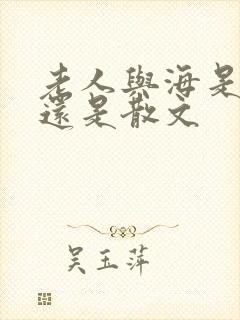 老人與海是
還是散文
吴玉萍